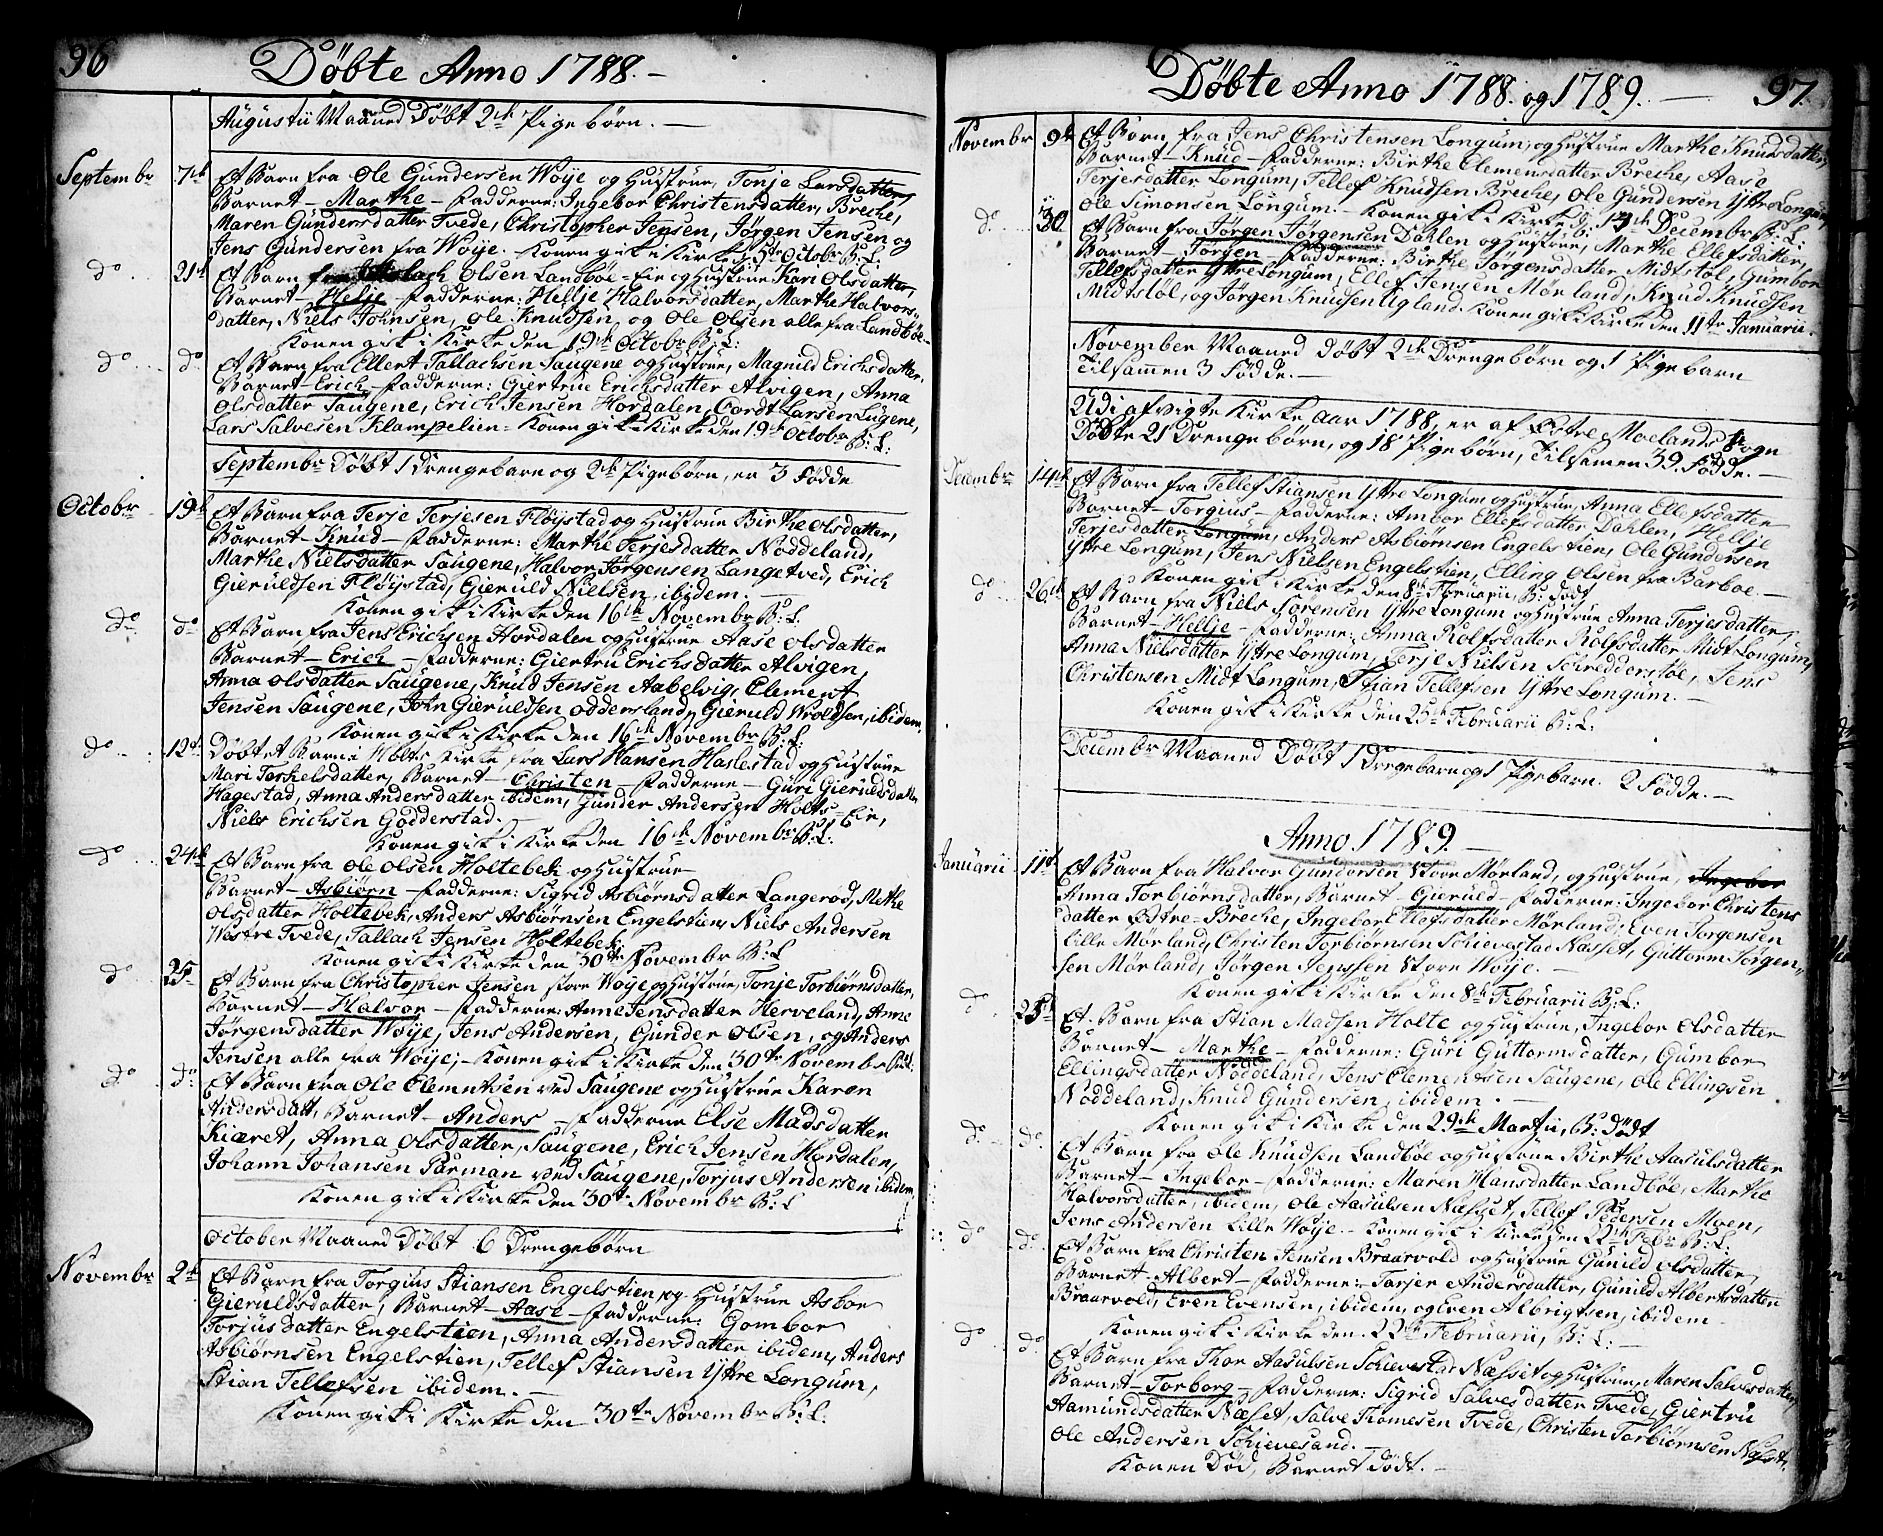 96
Döbte Anno 1788.
Augustii Maaned Döbt 2de Pigebörn.
Septembr 7de Et Barn fra Ole Gundersen Woÿe og Hustrue, Tonje Larsdatter,
Barnet - Marthe - Fadderne: Ingebor Christensdatter, Breche,
Maren Gundersdatter Tvede, Christopher Jensen, Jörgen Jensen og
Jens Gundersen fra Woÿe. Konen gik i Kirke d. 5te Octobr B: L:
do 21de Et Barn fra Olsen Landböe-Eie og Hustrue Kari Olsdatter,
Barnet - Helje - Fadderne: Hellje Halvorsdatter, Marthe Halvors-
datter, Niels Johnsen, Ole Knudsen og Ole Olsen alle fra Landböe
Konen gik i Kirke den 19de Octobr B: L:
do do Et Barn fra Ellert Tallachsen Saugene og Hustrue, Magnild Erichsdatter,
Barnet - Erich - Fadderne: Giertrue Erichsdatter Alvigen, Anna
Olsdatter Saugene, Erich Jensen Hordalen, Cordt Larsen Lugene,
Lars Salvesen Klampelien - Konen gik i Kirke den 19de Octobr B: L:
Septembr Döbt 1 Drengebarn og 2de Pigebörn, er 3 Födde
Octobr 19de Et Barn fra Terje Terjesen Flöystad og Hustrue Birthe Olsdatter,
Barnet - Knud - Fadderne: Marthe Terjesdatter Nöddeland,
Marthe Nielsdatter Saugene, Halvor Jörgensen Langetved, Erich
Gieruldsen Flöÿstad, Gieruld Nielsen, ibidem.
Konen gik i Kirke den 16de Novembr B: L.
do do Et Barn fra Jens Erichsen Hordalen og Hustrue Aase Olsdatter
Barnet - Erich - Fadderne: Giertru Erichsdatter Alvigen,
Anna Olsdatter Saugene, Knud Jensen Aabelvig, Clement
Jensen Saugene, John Gieruldsen Oddersland, Gieruld Wroldsen, ibidem.
Konen gik i Kirke den 16de Novembr B: L:
do 12te Döbt et Barn i Holts Kirke fra Lars Hansen Haslestad og Hustrue
Mari Terkelsdatter, Barnet - Christen - Fadderne - Guri Gieruldsdatter
Hagestad, Anna Andersdatter ibidem, Gunder Andersen Holts-Eie,
Niels Erichsen Godderstad.
Konen gik i Kirke den 16de Novembr B: L:
do 24de Et Barn fra Ole Olsen Holtebek og Hustrue
Barnet - Asbiörn - Fadderne: Sigrid Asbiörnsdatter Langeröd, Methe
Olsdatter Holtebek, Anders Asbiörnsen Engelstien, Niels Andersen
Westre Tvede, Tallach Jensen Holtebek:
Konen gik i Kirke den 30te Novembr B: L
do 25. Et Barn fra Christopher Jensen Store Woÿe og Hustrue, Tonje Torbiörnsdatter,
Barnet - Halvor - Fadderne: Anne Jensdatter Herveland, Anne
Jörgensdatter Woÿe, Jens Andersen, Gunder Olsen, og Anders
Jensen alle fra Woÿe; - Konen gik i Kirke den 30te Novembr B: L:
do do Et Barn fra Ole Clementsen ved Saugene og Hustrue Karen
Andersdatt, Barnet - Anders - Fadderne Else Madsdatter
Kiæret, Anna Olsdatter, Saugene, Erich Jensen Hordalen,
Johann Johansen Parman ved Saugene, Torjus Andersen ibidem.
Konen gik i Kirke den 30te Novembr B: L
October Maaned Döbt 6 Drengebörn
Novembr 2de Et Barn fra Torgius Stiansen Engelstien og Hustrue Asbor
Gieruldsdatter, Barnet - Aase - Fadderne: Gombor
Torjusdatter Engelstien, Anna Andersdatter ibidem, Anders
Asbiörnsen Engelstien, Tellef Stiansen Yttre Longum,
Stian Tellefsen ibidem.
Konen gik i Kirke den 30te Novembr B: L:
Döbte Anno 1788. og 1789. 97.
Novembr 9de Et Barn fra Jens Christensen Longum, og Hustrue Marthe Knudsdatter,
Barnet - Knud - Fadderne: Birthe Clemensdatter Breche, Aase
Terjesdatter Longum, Tellef Knudsen Breche, Ole Gundersen Yttre Longum,
Ole Simonsen Longum. - Konen gik i Kirke d. Decembr B: L:
do 30 Et Barn fra Jörgen Jörgensen Dahlen og Hustrue, Marthe Ellefsdatter,
Barnet - Jörgen - Fadderne: Birthe Jörgensdatter, Midtstöl, Gumbor
Tellefsdatter Yttre Longum, Ellef Jensen Mörland, Knud Knudsen
Midtstöl, og Jörgen Knudsen Ugland. Konen gik i Kirke den 11te Januarii.
November Maaned Döbt 2de Drengebörn og 1 Pigebarn
Tilsammen 3 Födde.
Udi afvigte Kirke Aar 1788, er af Östre Moelands Sogn
Döbte 21 Drengebörn, og 18 Pigebörn, Tilsamen 39. Födde.
Decembr 14de Et Barn fra Tellef Stiansen Yttre Longum og Hustrue, Anna Ellefsdatter
Barnet - Torgius - Fadderne: Ambor Ellefsdatter Dahlen, Hellje
Terjesdatter Longum, Anders Asbiörnsen Engelstien, Ole Gundersen
Yttre Longum, Jens Nielsen Engelstien, Elling Olsen fra Barboe.
Konen gik i Kirke den 8de Februarii, B: Dödt
do 26de Et Barn fra Niels Sörensen Yttre Longum og Hustrue Anna Terjesdatter,
Barnet - Hellje - Fadderne: Anna Rolfsdatter Rolfsdatter Midt Longum,
Anna Nielsdatter Yttre Longum, Terje Nielsen Schreddersløe, Jens
Christensen Midt Longum, Stian Tellefsen Yttre Longum.
Konen gik i Kirke den 25de Februarii B: L:
Decembr Maaned Döbt 1 Drengebarn og 1 Pigebarn. 2 Födde.
Anno 1789.
Januarii 11te Et Barn fra Halvor Gundersen Store Mörland, og Hustrue, Ingebor
Anna Torbiörnsdatter, Barnet - Gieruld - Fadderne: Ingebor Christens
datter Östre-Breche, Ingebor Ellefsdatter Mörland, Even Jörgensen
Lille Mörland, Christen Torbiörnsen Schievestad Næsset, Guttorm Jörgen,
sen Mörland, Jörgen Jenssen Store Woÿe.
Konen gik i Kirke den 8de Februarii B: L:
do 25de Et Barn fra Stian Madsen Holte og Hustrue, Ingebor Olsdatter
Barnet - Marthe - Fadderne: Guri Guttormsdatter, Gumbor
Ellingsdatter Nöddeland, Jens Clementsen Saugene, Ole Ellingsen
Nöddeland, Knud Gundersen, ibidem.
Konen gik i Kirke den 29de Martii, B: Dödt
do do Et Barn fra Ole Knudsen Landböe og Hustrue Birthe Aasulsdatter
Barnet - Ingebor - Fadderne: Maren Hansdatter Landböe, Marthe
Halvorsdatter, ibidem, Ole Aasulsen Næsset, Tellef Pedersen Moen,
Jens Andersen Lille Woÿe. - Konen gik i Kirke den 22de Febr. B: L:
do do Et Barn fra Christen Jensen Braarvold og Hustrue Gunild Olsdatter,
Barnet - Albert - Fadderne: Tarjer Andersdatter, Gunild Albertsdatter
Braarvold, Even Evensen, ibidem, og Even Albrigtsen, ibidem
Konen gik i Kirke den 22de Februarii, B: L:
do do Et Barn fra Thor Aasulsen Schievestad Næsset og Hustrue, Maren Salvesdatter
Barnet - Torborg - Fadderne: Sigrid Salvesdatter Tvede, Giertru
Aamundsdatter Næset, Salve Thomesen Tvede, Christen Torbiörnsen Næset,
Ole Andersen Schievesand.
Konen Död, Barnet Dödt.